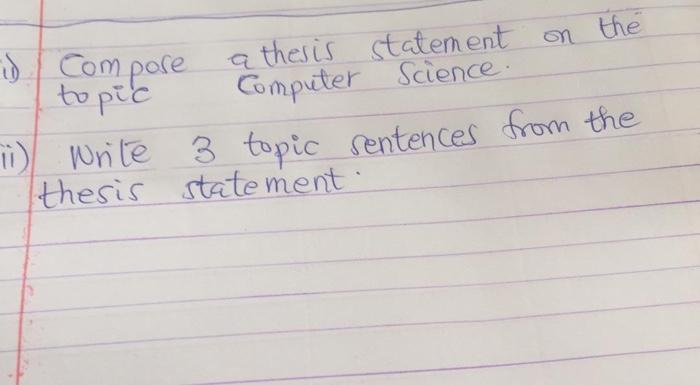 i) Compose a thesis statement on the
topic Computer Science.
ii) Write 3 topic sentences from the
thesis statement.